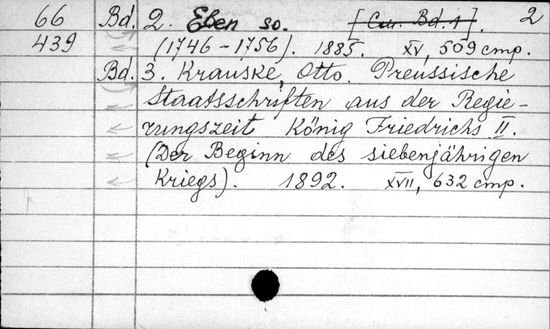 66 Bd. 2. Eben so. [См. Bd. 1]. 2
439 (1746-1756). 1885. XV, 509 стр.
Bd. 3. Krauske, Otto. Preussische
Staatsschriften aus der Regie-
rungszeit König Friedrichs II.
(Der Beginn des siebenjährigen
Kriegs). 1892. XVII, 632 стр.